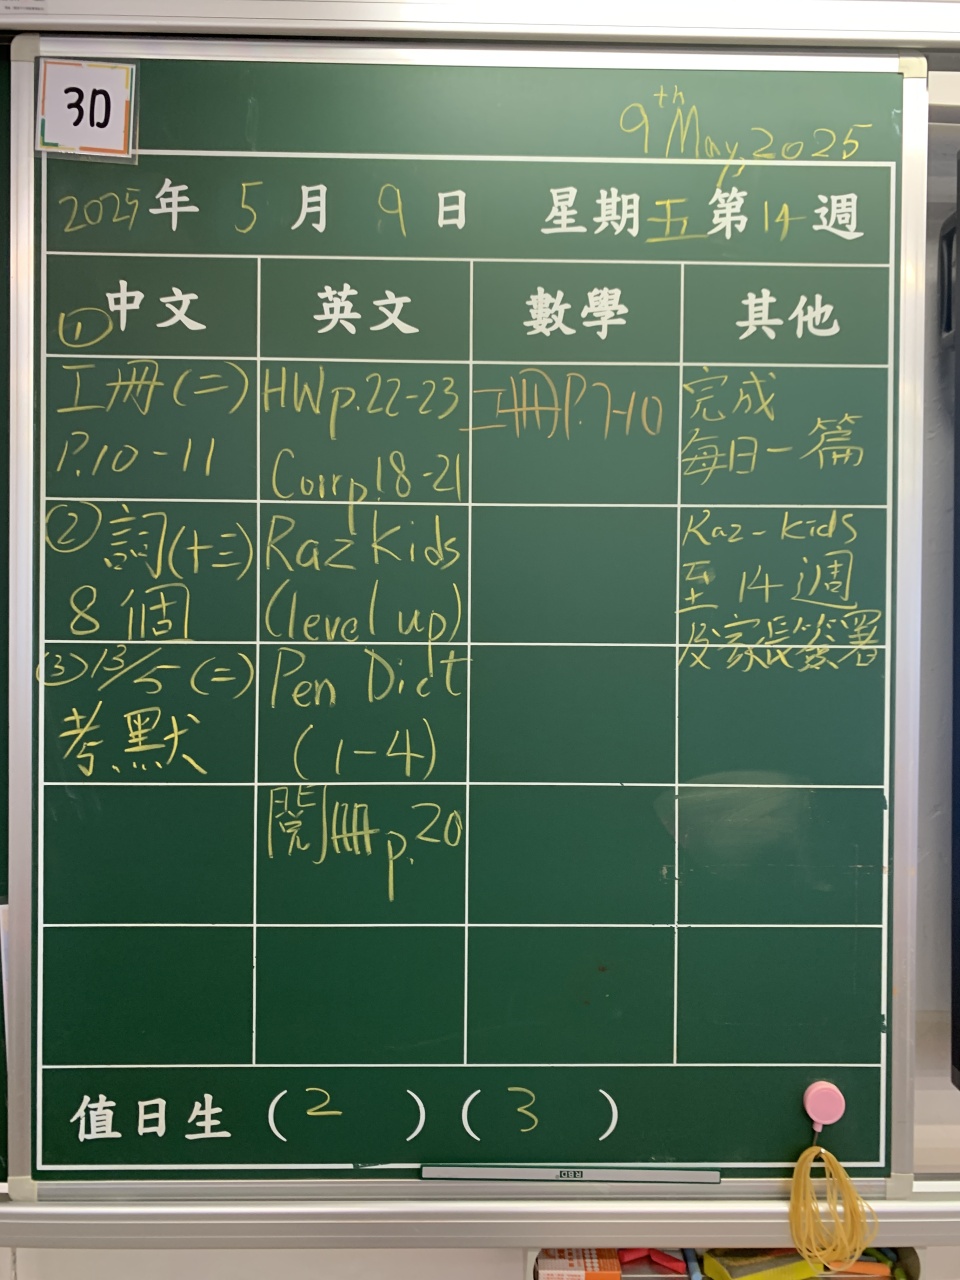 3D
9th May, 2025
2025年 5 月 9 日 星期五 第14週
中文 英文 數學 其他
① 工冊(二)
P.10-11
② 詞(十三)
8個
(3) 13/5 (二)
考.默
HWp.22-23
Corrp.18-21
Raz Kids
(level up)
Pen Dict
(1-4)
閱冊p.20
工冊P.7-10
完成
每日一篇
Raz-Kids
至 14週
及家長簽署
值日生 (2) (3)
RBD